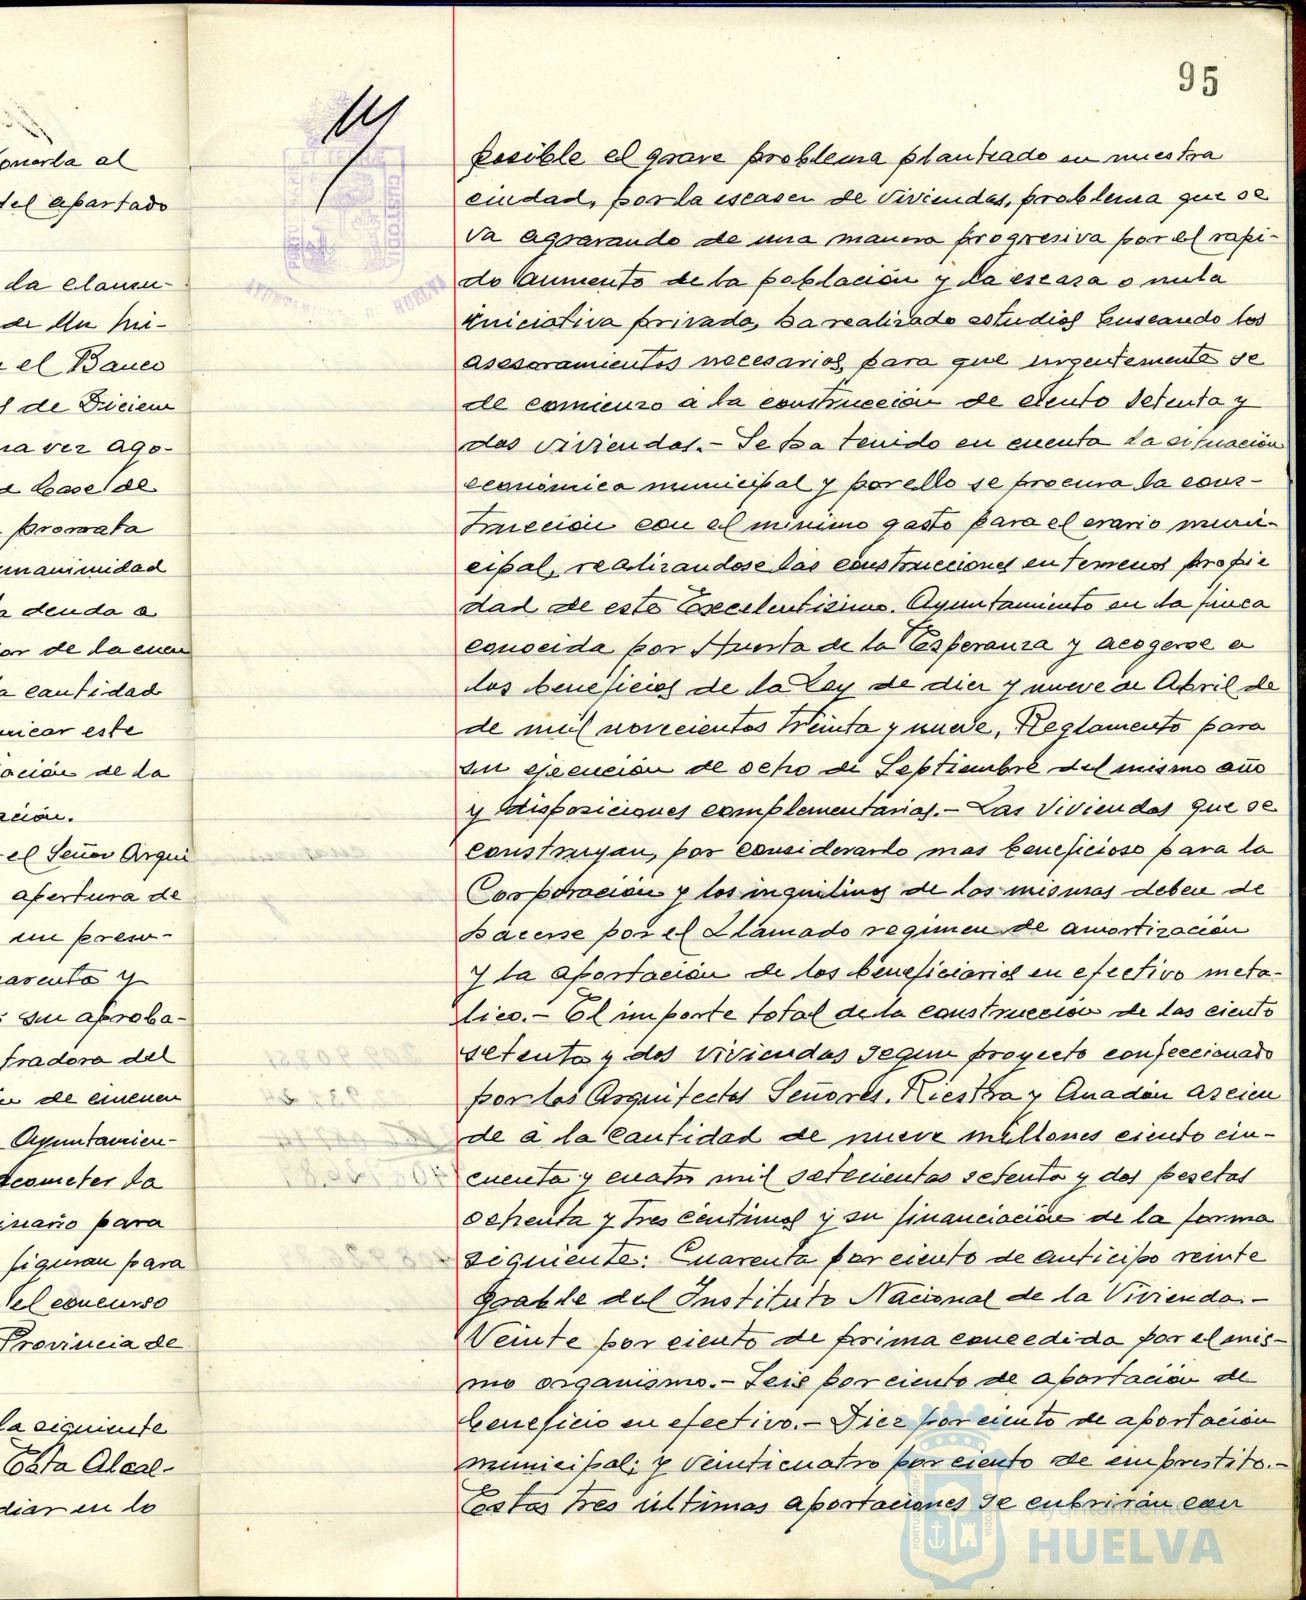 95
posible el grave problema planteado en nuestra
ciudad, por la escasez de viviendas, problema que se
va agravando de una manera progresiva por el rapi-
do aumento de la población y la escasa o nula
iniciativa privada, ha realizado estudios buscando los
asesoramientos necesarios, para que urgentemente se
de comienzo a la construcción de ciento setenta y
dos viviendas.- Se ha tenido en cuenta la situación
económica municipal y por ello se procura la cons-
trucción con el minimo gasto para el erario muni-
cipal, realizandose las construcciones en terrenos propie
dad de este Excelentisimo. Ayuntamiento en la finca
conocida por Huerta de la Esperanza y acogerse a
los beneficios de la Ley de diez y nueve de Abril de
de mil novecientos treinta y nueve, Reglamento para
su ejecución de ocho de Septiembre del mismo año
y disposiciones complementarias.- Las viviendas que se
construyan, por considerarlo mas beneficioso para la
Corporación y los inquilinos de las mismas deben de
hacerse por el llamado regimen de amortización
y la aportación de los beneficiarios en efectivo meta-
lico.- El importe total de la construcción de las ciento
setenta y dos viviendas segun proyecto confeccionado
por los Arquitectos Señores. Riestra y Anadón ascien
de á la cantidad de nueve millones ciento cin-
cuenta y cuatro mil setecientas setenta y dos pesetas
ochenta y tres centimos y su financiación de la forma
siguiente: Cuarenta por ciento de anticipo reinte
grable del Instituto Nacional de la Vivienda.-
Veinte por ciento de prima concedida por el mis-
mo organismo.- Seis por ciento de aportación de
beneficio en efectivo.- Diez por ciento de aportación
municipal; y veinticuatro por ciento de emprestito.-
Estas tres últimas aportaciones se cubrirán con
al
del apartado
la clausu-
de Un mi-
el Banco
de Diciem
vez ago-
base de
prorrata
unanimidad
deuda a
de la cuen
cantidad
este
de la
el Señor Arqui
apertura de
un presu-
y
su aproba-
del
de cincuen
Ayuntamien-
acometer la
para
figuran para
el concurso
Provincia de
la siguiente
Esta Alcal-
diar en lo
HUELVA
Ayuntamiento de
HUELVA